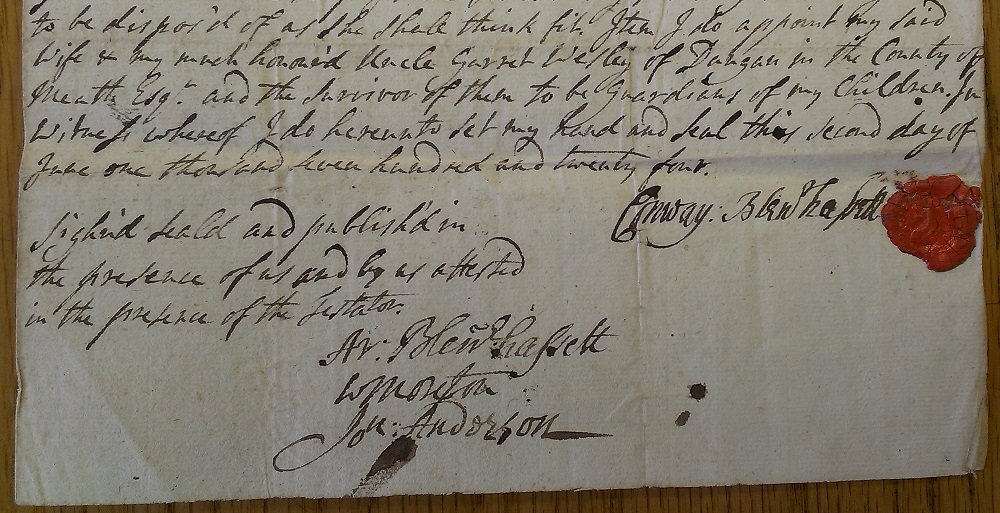 to be dispos'd of as She shall think fit. Item I do appoint my said
Wife & my much honour'd Uncle Garret Wesley of Dangan in the County of
Meath Esqr. and the Survivor of them to be Guardians of my Children. In
witness whereof I do hereunto set my hand and seal this second day of
June one thousand seven hundred and twenty four.
Conway: Blenrhassett
Sighn'd seald and publish'd in
the presence of us and by us attested
in the presence of the Testator.
Ar: Blenrhassett
W Moreton
Jon: Anderson